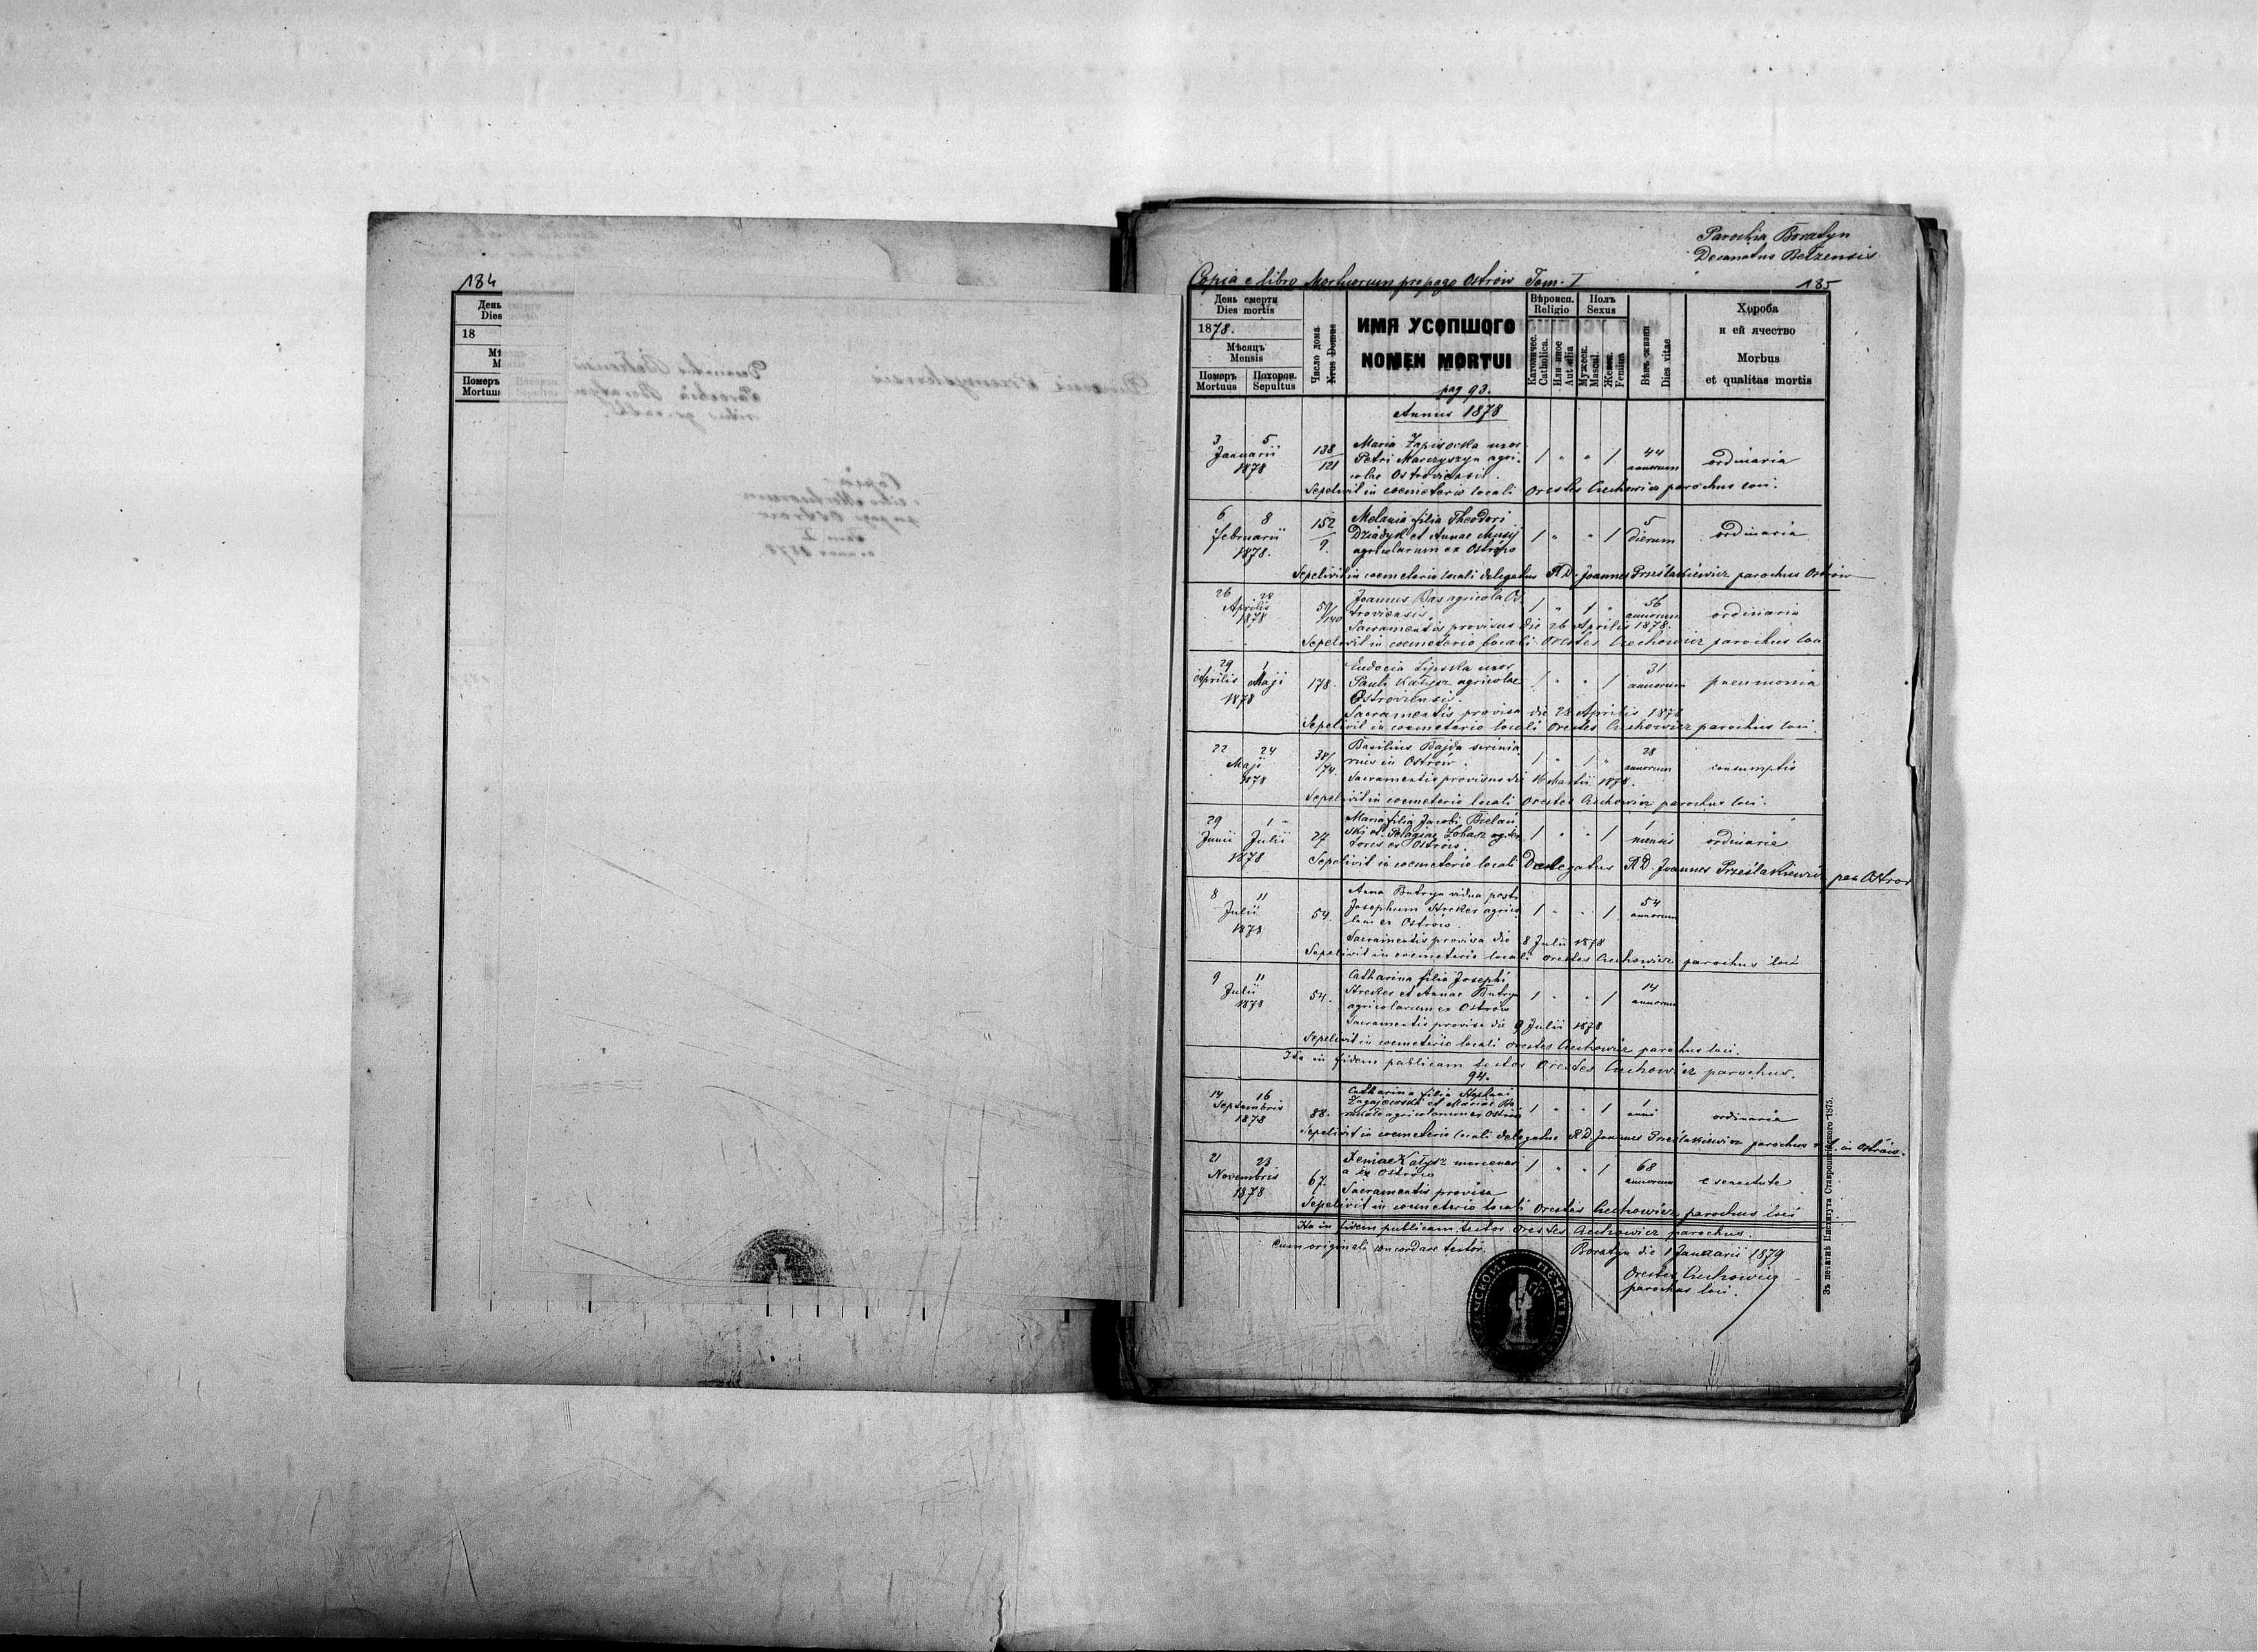 184
День
Dies
18
Помер
Mortuu
Parochia Boratyn
Decanatus Belzensis
Copia e libro Mortuorum pro pago Ostrów Tom. I
185
День смерти
Dies mortis
1878.
Мѣсяцъ
Mensis
Померъ
Mortuus
Похорон.
Sepultus
Число дома
Nrus Domus
ИМЯ УСОПШОГО
NOMEN MORTUI
Вѣроисп.
Religio
Католичес.
Catholica.
Или иное
Aut alia
Полъ
Sexus
Мужеск.
Mascul.
Женск.
Femina
Вѣкъ жизни
Dies vitae
Хороба
и ей ячество
Morbus
et qualitas mortis
pag 93.
Annus 1878
3 5
Januarii
1878
138
121
Maria Zapisocka uxor
Petri Marczyszyn agri-
colae Ostroviensis.
1 " " 1
44
annorum
ordinaria
Sepelivit in coemeterio locali Orestes Czechowicz parochus loci.
6 8
Februarii
1878.
152
9.
Melania filia Theodori
Dziadyk et Annae Musij
agricolarum ex Ostrów
1 " " 1
5
dierum
ordinaria
Sepelivit in coemeterio locali delegatus R.D. Joannes Prześlakiewicz parochus Ostrów
26 28
Aprilis
1878
59/140
Joannes Bas agricola Os-
troviensis
1 " 1 "
56
annorum
ordinaria
Sacramentis provisus die 26 Aprilis 1878.
Sepelivit in coemeterio locali Orestes Czechowicz parochus loci
29 1
Aprilis Maji
1878
178.
Eudocia Lipska uxor
Pauli Kałysz agricolae
Ostroviensis.
1 " " 1
31
annorum
pneumonia
Sacramentis provisa die 28 Aprilis 1878
Sepelivit in coemeterio locali Orestes Czechowicz parochus loci.
22 24
Maji
1878
38/174.
Basilius Bajda
in Ostrów.
1 " 1 "
28
annorum
consumptio
Sacramentis provisus die 16 Martii 1878.
Sepelivit in coemeterio locali Orestes Czechowicz parochus loci.
29 1
Junii Julii
1878
27
Maria filia Jacobi Bielań
ski et Pelagiae Łobasz
ex Ostrów.
1 " " 1
1
mensis
ordinaria
Sepelivit in coemeterio locali Delegatus R.D. Joannes Prześlakiewicz par Ostrov
8 11
Julii
1878
54.
Anna Butryn vidua post
Josephum Strokes agrico-
lam ex Ostrów.
1 " " 1
54
annorum
Sacramentis provisa die 8 Julii 1878
Sepelivit in coemeterio locali Orestes Czechowicz parochus loci
9 11
Julii
1878
54.
Catharina filia Josephi
Strokes et Annae Butryn
agricolarum ex Ostrów
1 " " 1
14
annorum
Sacramentis provisa die 9 Julii 1878
Sepelivit in coemeterio locali Orestes Czechowicz parochus loci.
Ita in fidem publicam testor Orestes Czechowicz parochus.
94.
14 16
Septembris
1878
88.
Catharina filia Stephani
et Mariae
agricolarum ex Ostrów
1 " " 1
1
anni
ordinaria
Sepelivit in coemeterio locali delegatus R.D. Joannes Prześlakiewicz parochus in Ostrów.
21 23
Novembris
1878
67.
Xenia Kałysz mercenari
a ex Ostrów
1 " " 1
68
annorum
e senectute
Sacramentis provisa
Sepelivit in coemeterio locali Orestes Czechowicz parochus loci
Ita in fidem publicam testor Orestes Czechowicz parochus.
Cum originali concordare testor.
Boratyn die 1 Januarii 1879
Orestes Czechowicz
parochus loci.
Зъ печатнѣ Института Ставропигійского 1875.